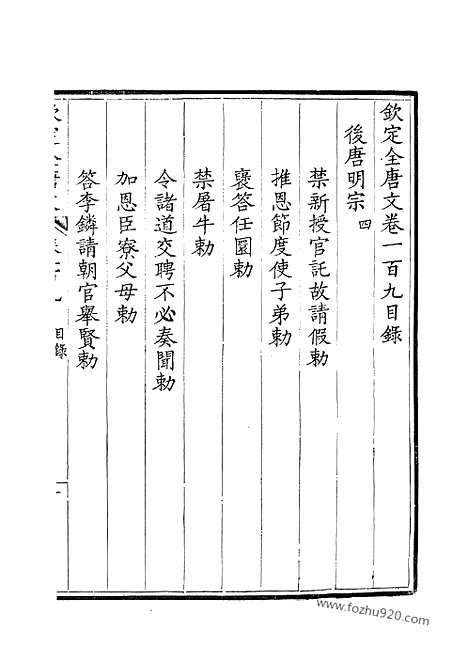 欽定全唐文卷一百九目錄
後唐明宗 四
禁新授官託故請假勅
推恩節度使子弟勅
襃答任圜勅
禁屠牛勅
令諸道交聘不必奏聞勅
加恩臣寮父母勅
答李鏻請朝官舉賢勅
目錄
www.fozhu920.com